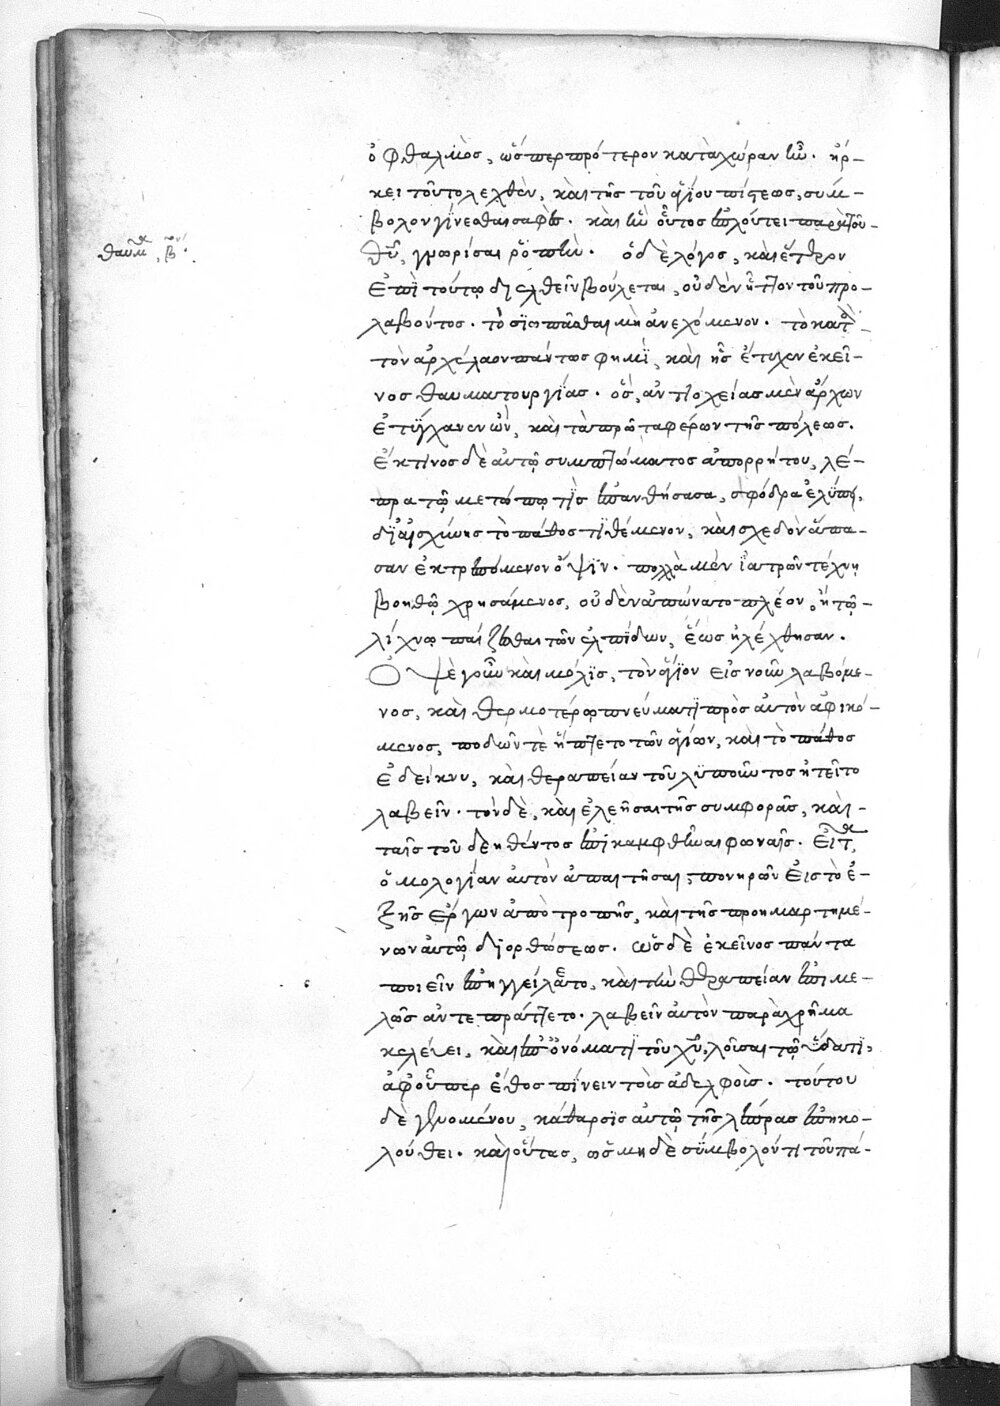 ὀφθαλμὸς, ὥσπερ πρότερον κατὰ χώραν ἦν. ἤρ-
κει τοῦτο λεχθὲν, καὶ τῆς τοῦ ἁγίου πίστεως, σύμ-
βολον γίνεσθαι σαφὲς. καὶ ἣν οὗτος ἐπλούτει παρὰ τοῦ
θαυμα β΄.
θῦ, γνωρίσαι ῥοπὴν. ὁ δὲ λόγος, καὶ ἕτερον
ἐπὶ τούτῳ διελθεῖν βούλεται, οὐδὲν ἧττον τοῦ προ-
λαβόντος. τὸ σιωπᾶσθαι μὴ ἀνεχόμενον. τὸ κατὰ
τὸν ἀρχέλαον πάντως φημὶ, καὶ ἧς ἔτυχεν ἐκεῖ-
νος θαυματουργίας. ὃς, ἀντιοχείας μὲν ἄρχων
ἐτύγχανεν ὢν, καὶ τὰ πρῶτα φέρων τῆς πόλεως.
ἔκ τινος δὲ αὐτῷ συμπτώματος ἀπορρήτου, λέ-
πρα τῷ μετώπῳ τις ἐπανθήσασα, σφόδρα ἐλύπει,
δι' αἰσχύνης τὸ πάθος τιθέμενον, καὶ σχεδὸν ἅπα-
σαν ἐκτρεπόμενον ὄψιν. πολλὰ μὲν ἰατρῶν τέχνῃ
βοηθῷ χρησάμενος, οὐδὲν ἀπώνατο πλέον, ἢ τῷ
λίχνῳ παίζεσθαι τῶν ἐλπίδων, ἕως ἠλέχθησαν.
Ὀψὲ γοῦν καὶ μόλις, τὸν ἅγιον εἰς νοῦν λαβόμε-
νος, καὶ θερμοτέρῳ πνεύματι πρὸς αὐτὸν ἀφικό-
μενος, ποδῶν τὲ ἥπτετο τῶν ἁγίων, καὶ τὸ πάθος
ἐδείκνυ, καὶ θεραπείαν τοῦ λυποῦντος ᾐτεῖτο
λαβεῖν. τὸν δὲ, καὶ ἐλεῆσαι τῆς συμφορᾶς, καὶ
ταῖς τοῦ δεηθέντος ἐπικαμφθῆναι φωναῖς. εἶτα,
ὁμολογίαν αὐτὸν ἀπαιτῆσαι, πονηρῶν εἰς τὸ ἑ-
ξῆς ἔργων ἀποτροπῆς, καὶ τῆς προημαρτημέ-
νων αὐτῷ διορθώσεως. ὡς δὲ ἐκεῖνος πάντα
ποιεῖν ἐπηγγείλατο, καὶ τὴν θεραπείαν ἐπιμε-
λῶς ἀντεπράττετο. λαβεῖν αὐτὸν παράχρημα
κελεύει, καὶ ἐπ' ὀνόματι τοῦ χῦ, λοῦσαι τῷ ὕδατι,
ἀφ' οὗπερ ἔθος πίνειν τοῖς ἀδελφοῖς. τούτου
δὲ γενομένου, κάθαρσις αὐτῷ τῆς λέπρας ἐπηκο-
λούθει. καὶ οὕτως, ὡς μηδὲ σύμβολόν τι τοῦ πά-